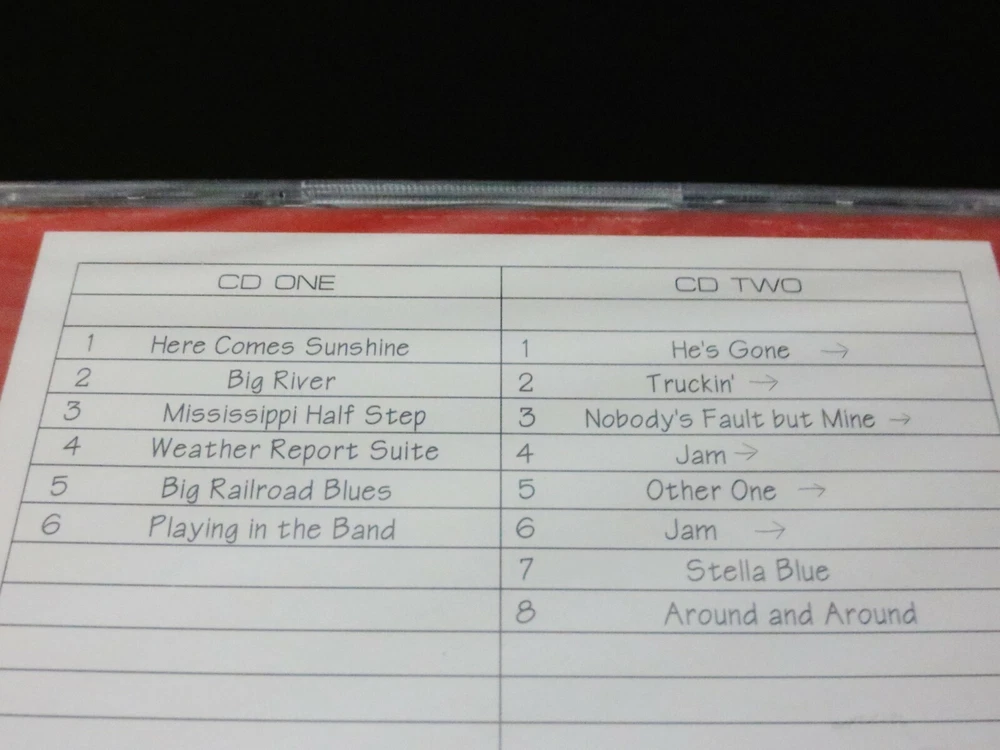 CD ONE
1 Here Comes Sunshine
2 Big River
3 Mississippi Half Step
4 Weather Report Suite
5 Big Railroad Blues
6 Playing in the Band
CD TWO
1 He's Gone →
2 Truckin' →
3 Nobody's Fault but Mine →
4 Jam →
5 Other One →
6 Jam →
7 Stella Blue
8 Around and Around